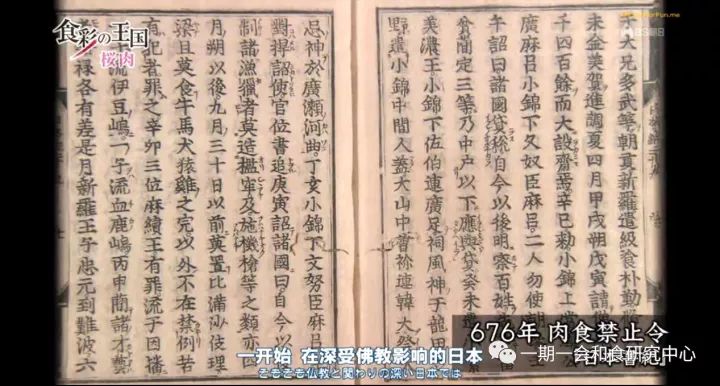 食彩の王国
桜肉
BS朝日
大兄多武等朝貢新羅遣級飡朴勤
未金美賀進調夏四月甲戌朔戊寅請
千四百餘而大設齋焉辛巳勅小錦上
廣麻呂小錦下久努臣麻呂二人勿使朝
午詔曰諸國貸税自今以後明察百姓
簡定三等仍中戸以下應與貸癸未遣
美濃王小錦下佐伯連廣足祠風神于龍田
野遣小錦中間人蓋大山中曽祢連韓犬祭
忌神於廣瀬河曲丁亥小錦下文努臣麻呂
對捍詔使官位盡追庚寅詔諸國曰自今以
制諸漁獵者莫造檻穽及施機槍等之類亦四
月朔以後九月三十日以前莫置比滿沙伎理
梁且莫食牛馬犬猿雞之完以外不在禁例若
有犯者罪之辛卯三位麻續王有罪流于因播
流伊豆嶋一子流血鹿嶋丙申簡諸才藝
禄各有差是月新羅王子忠元到難波六
676年 肉食禁止令
日本書紀
一开始 在深受佛教影响的日本
そもそも仏教と関わりの深い日本では
一期一会和食研究中心